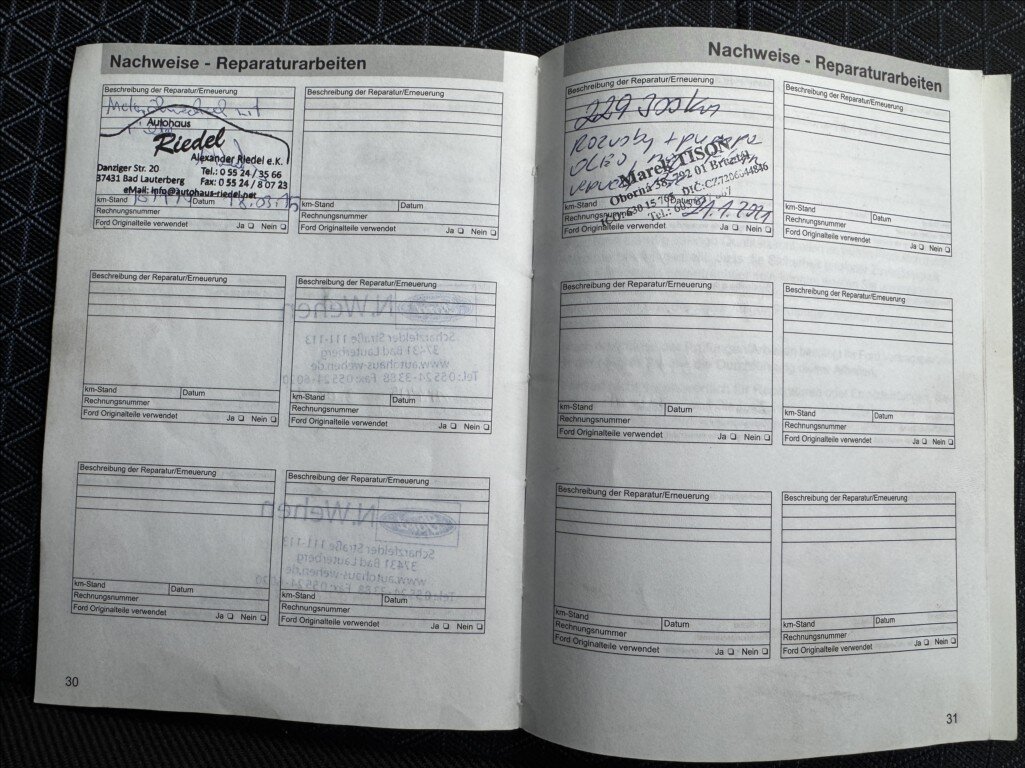 Nachweise - Reparaturarbeiten
Beschreibung der Reparatur/Erneuerung
Autohaus
Riedel
Alexander Riedel e.K.
Danziger Str. 20
Tel.: 0 55 24 / 35 66
37431 Bad Lauterberg
Fax: 0 55 24 / 8 07 23
eMail: info@autohaus-riedel.net
km-Stand
Datum
Rechnungsnummer
Ford Originalteile verwendet Ja Nein
Beschreibung der Reparatur/Erneuerung
km-Stand Datum
Rechnungsnummer
Ford Originalteile verwendet Ja Nein
Beschreibung der Reparatur/Erneuerung
km-Stand Datum
Rechnungsnummer
Ford Originalteile verwendet Ja Nein
Beschreibung der Reparatur/Erneuerung
N.Wehen
Scharzfelder Straße 111-113
37431 Bad Lauterberg
www.autohaus-wehen.de
km-Stand Datum
Rechnungsnummer
Ford Originalteile verwendet Ja Nein
Beschreibung der Reparatur/Erneuerung
km-Stand Datum
Rechnungsnummer
Ford Originalteile verwendet Ja Nein
Beschreibung der Reparatur/Erneuerung
N.Wehen
Scharzfelder Straße 111-113
37431 Bad Lauterberg
www.autohaus-wehen.de
km-Stand Datum
Rechnungsnummer
Ford Originalteile verwendet Ja Nein
30
Nachweise - Reparaturarbeiten
Beschreibung der Reparatur/Erneuerung
229 300km
Rozvody + pumpa
Marek TISON
Oborná 38, 792 01 Bruntál
km-Stand
Rechnungsnummer
21.1.2021
Ford Originalteile verwendet Ja Nein
Beschreibung der Reparatur/Erneuerung
km-Stand Datum
Rechnungsnummer
Ford Originalteile verwendet Ja Nein
Beschreibung der Reparatur/Erneuerung
km-Stand Datum
Rechnungsnummer
Ford Originalteile verwendet Ja Nein
Beschreibung der Reparatur/Erneuerung
km-Stand Datum
Rechnungsnummer
Ford Originalteile verwendet Ja Nein
Beschreibung der Reparatur/Erneuerung
km-Stand Datum
Rechnungsnummer
Ford Originalteile verwendet Ja Nein
Beschreibung der Reparatur/Erneuerung
km-Stand Datum
Rechnungsnummer
Ford Originalteile verwendet Ja Nein
31